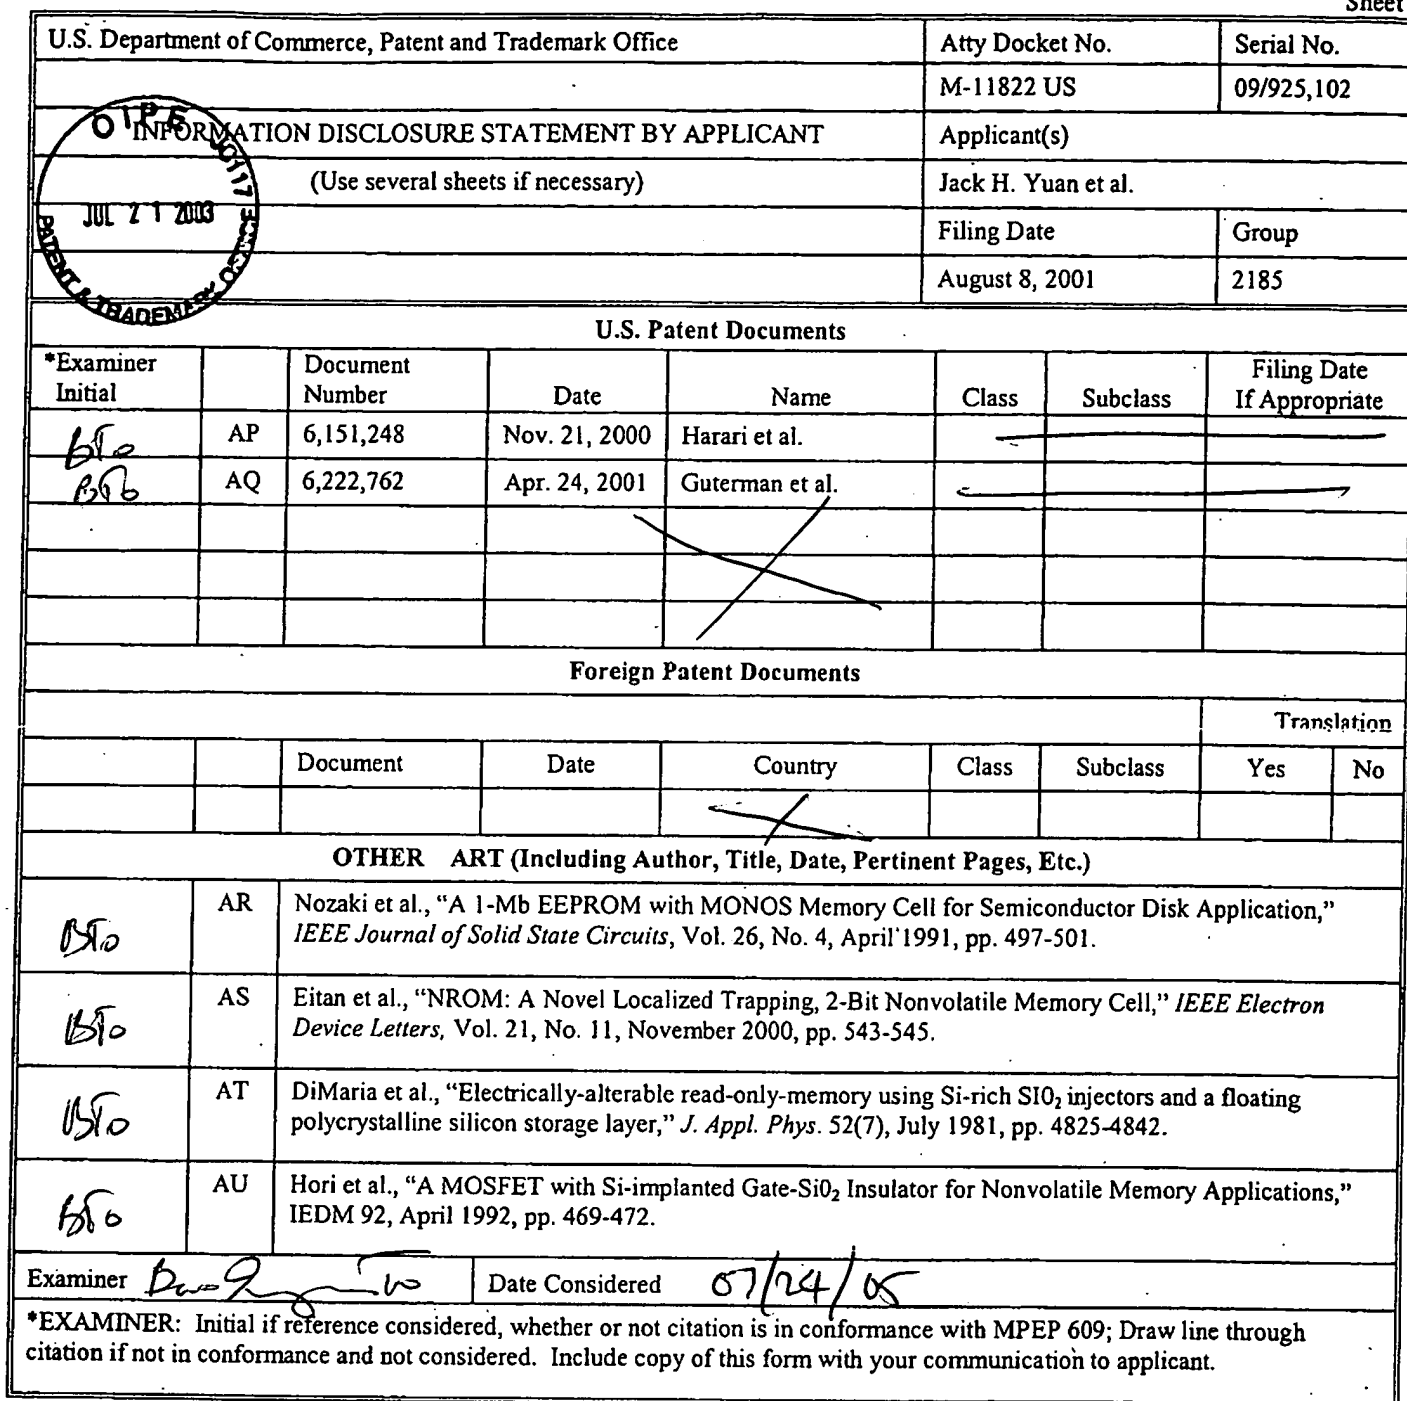 Sheet
U.S. Department of Commerce, Patent and Trademark Office Atty Docket No. Serial No.
M-11822 US 09/925,102
INFORMATION DISCLOSURE STATEMENT BY APPLICANT Applicant(s)
(Use several sheets if necessary) Jack H. Yuan et al.
Filing Date Group
August 8, 2001 2185
OIPE JC117
JUL 21 2003
PATENT & TRADEMARK OFFICE
U.S. Patent Documents
*Examiner Initial Document Number Date Name Class Subclass Filing Date If Appropriate
BTo AP 6,151,248 Nov. 21, 2000 Harari et al.
BTo AQ 6,222,762 Apr. 24, 2001 Guterman et al.
Foreign Patent Documents
Translation
Document Date Country Class Subclass Yes No
OTHER ART (Including Author, Title, Date, Pertinent Pages, Etc.)
BTo AR Nozaki et al., “A 1-Mb EEPROM with MONOS Memory Cell for Semiconductor Disk Application,”
IEEE Journal of Solid State Circuits, Vol. 26, No. 4, April 1991, pp. 497-501.
BTo AS Eitan et al., “NROM: A Novel Localized Trapping, 2-Bit Nonvolatile Memory Cell,” IEEE Electron
Device Letters, Vol. 21, No. 11, November 2000, pp. 543-545.
BTo AT DiMaria et al., “Electrically-alterable read-only-memory using Si-rich SI0₂ injectors and a floating
polycrystalline silicon storage layer,” J. Appl. Phys. 52(7), July 1981, pp. 4825-4842.
BTo AU Hori et al., “A MOSFET with Si-implanted Gate-Si0₂ Insulator for Nonvolatile Memory Applications,”
IEDM 92, April 1992, pp. 469-472.
Examiner Date Considered 07/24/05
*EXAMINER: Initial if reference considered, whether or not citation is in conformance with MPEP 609; Draw line through
citation if not in conformance and not considered. Include copy of this form with your communication to applicant.